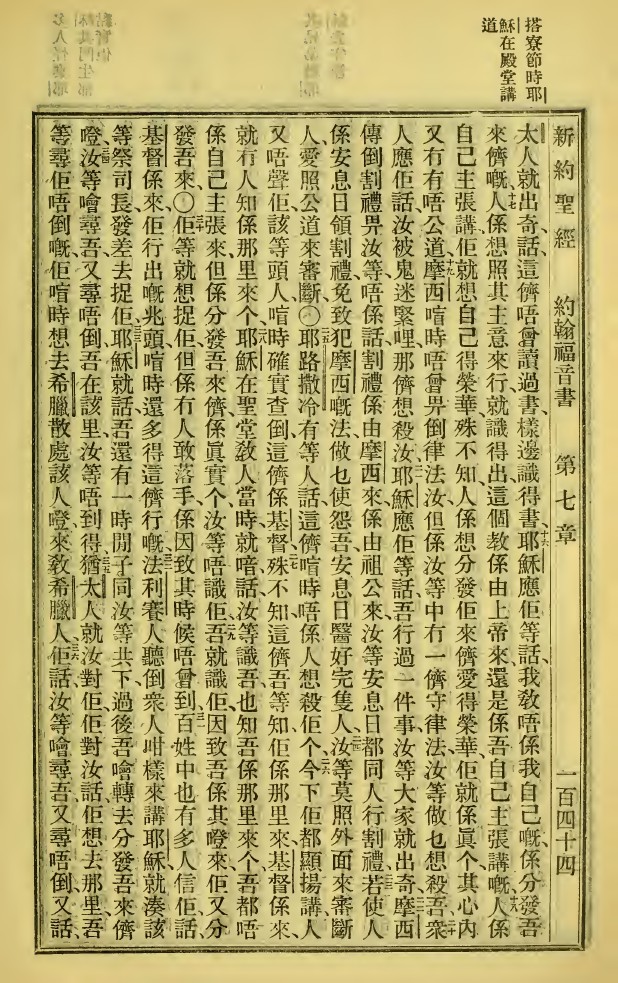 搭寮節時耶
穌在殿堂講
道
新約聖經 約翰福音書 第七章 一百四十四
太人就出奇話、這儕唔曾讀過書、樣邊識得書、耶穌應佢等話、我敎唔係我自己嘅、係分發吾
來儕嘅、人係想照其主意來行、就識得出這個敎係由上帝來、還是係吾自己主張講嘅、人係
自己主張講、佢就想自己得榮華、殊不知人係想分發佢來儕愛得榮華、佢就係眞个、其心內
又冇有唔公道、摩西喧時唔曾畀倒律法汝、但係汝等中冇一儕守律法、汝等做乜想殺吾、衆
人應佢話、汝被鬼迷緊哩、那儕想殺汝、耶穌應佢等話、吾行過一件事、汝等大家就出奇、摩西
傳倒割禮畀汝等、唔係話割禮係由摩西來、係由祖公來、汝等安息日都同人行割禮、若使人
係安息日領割禮、免致犯摩西嘅法、做乜使怨吾安息日醫好完隻人、汝等莫照外面來審斷
人、愛照公道來審斷〇耶路撒冷有等人話、這儕喧時唔係人想殺佢个、今下佢都顯揚講、人
又唔聲佢、該等頭人喧時確實查倒這儕係基督、殊不知這儕吾等知佢係那里來、基督係來、
就冇人知係那里來个、耶穌在聖堂敎人當時、就喑話、汝等識吾、也知吾係那里來个、吾都唔
係自己主張來、但係分發吾來儕係眞實个、汝等唔識佢、吾就識佢、因致吾係其嶝來、佢又分
發吾來、〇佢等就想捉佢、但係冇人敢落手、係因致其時候唔曾到、百姓中也有多人信佢話、
基督係來、佢行出嘅兆頭、喧時還多得這儕行嘅、法利賽人聽倒衆人咁樣來講耶穌、就湊該
等祭司長、發差去捉佢、耶穌就話、吾還有一時閒子同汝等共下、過後吾噲轉去分發吾來儕
嶝、汝等噲尋吾、又尋唔倒、吾在該里、汝等唔到得、猶太人就汝對佢、佢對汝話、佢想去那里、吾
等尋佢唔倒嘅、佢喧時想去希臘散處該人嶝來敎希臘人、佢話汝等噲尋吾、又尋唔倒、又話、